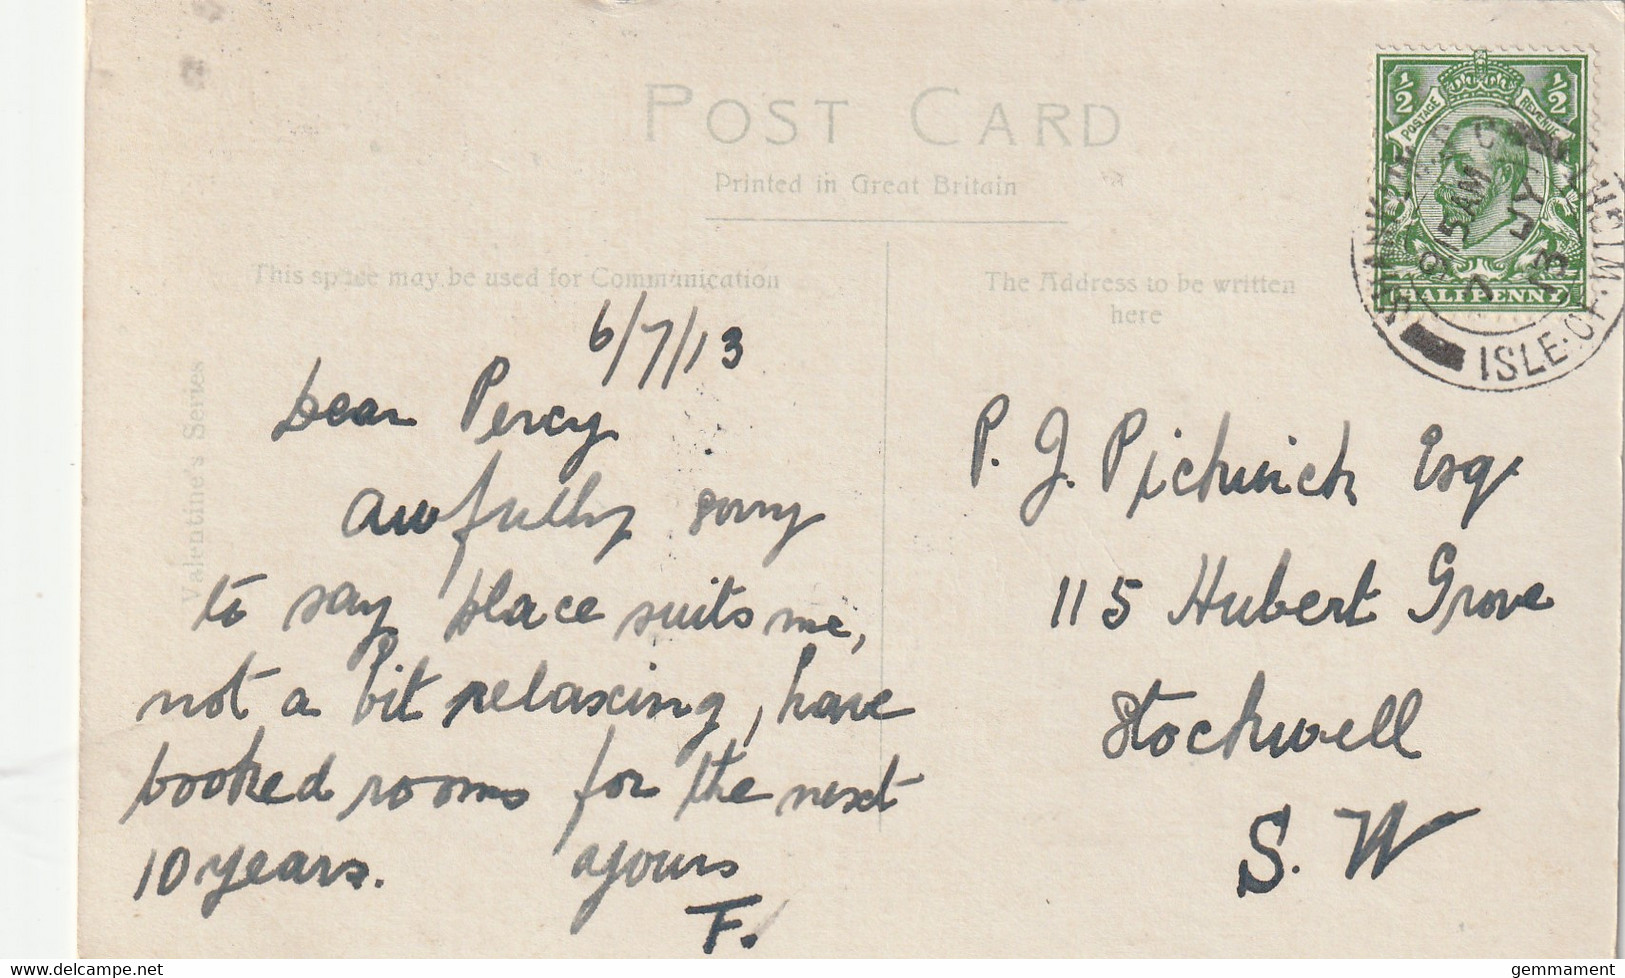 POST CARD
Printed in Great Britain
This space may be used for Communication
The Address to be written
here
Valentine's Series
6/7/13
Dear Percy
awfully sorry
to say place suits me,
not a bit relaxing, have
booked rooms for the next
10 years. yours
F.
P. J. Pickwick Esq
115 Hubert Grove
Stockwell
S. W
½ ½
POSTAGE REVENUE
HALFPENNY
SHANKLIN
ISLE·OF·WIGHT
9 15 AM
7 JY
13
delcampe.net
gemmament